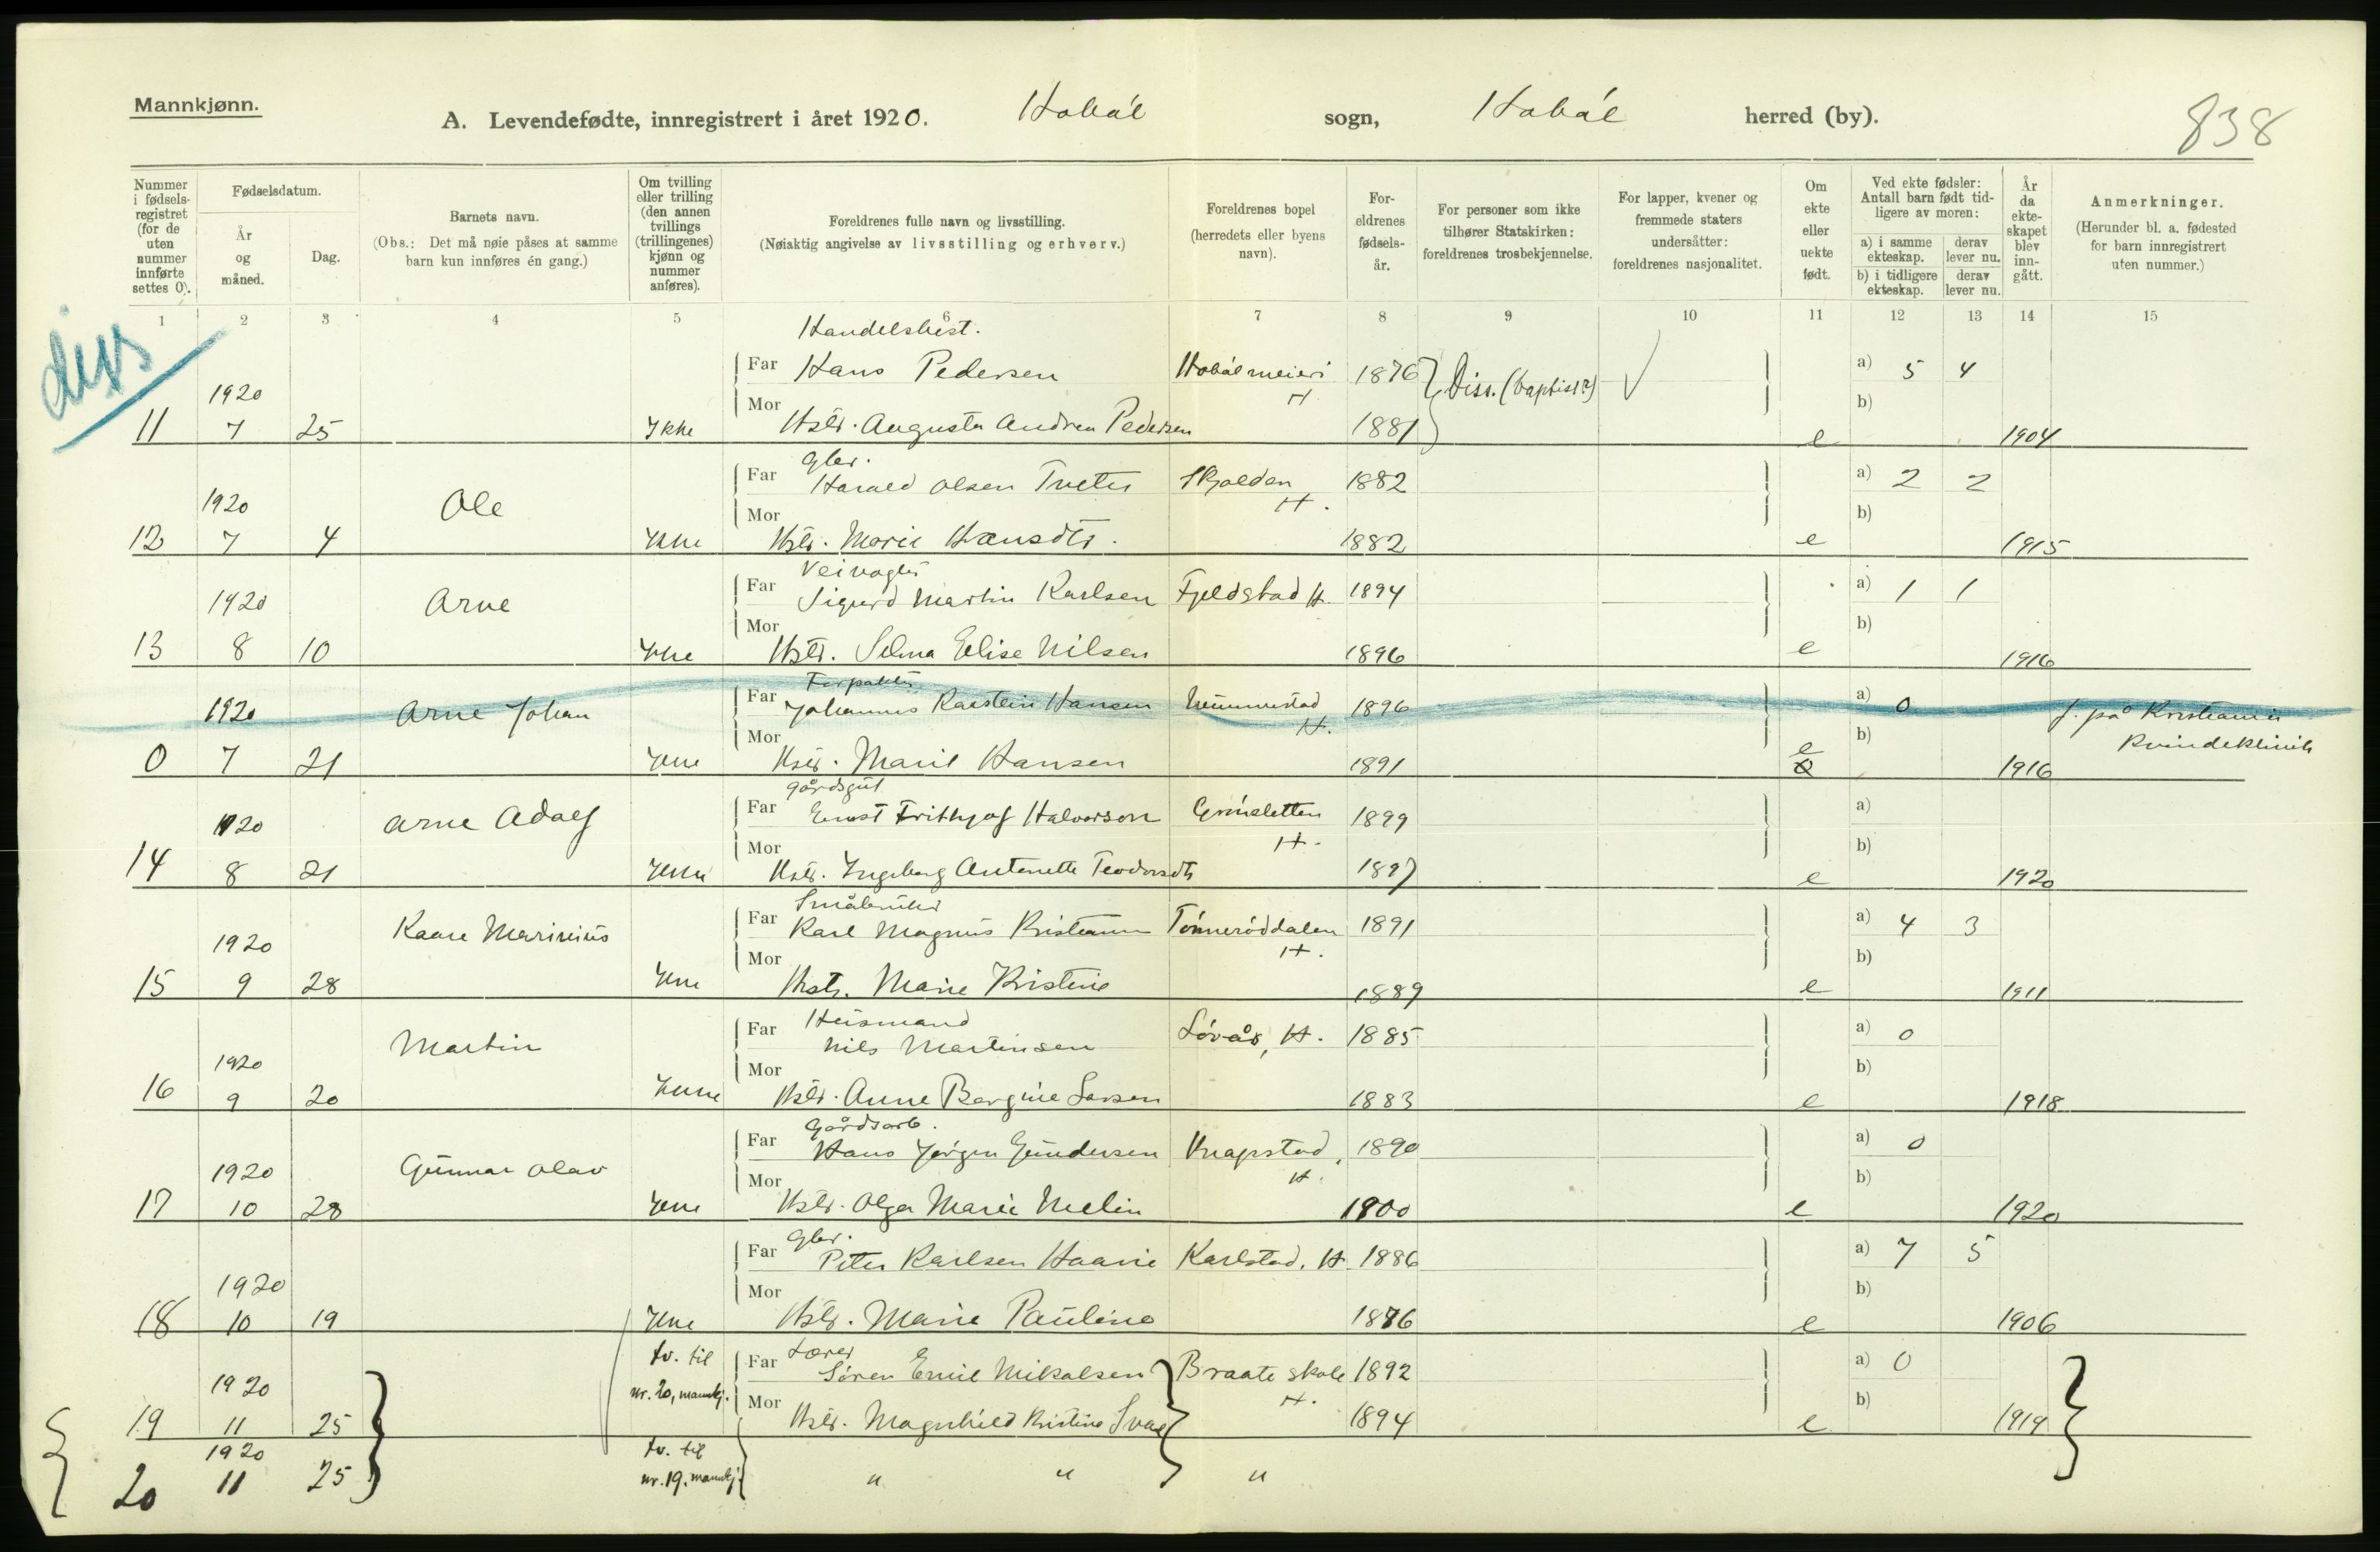 Mannkjønn.
A. Levendefødte, innregistrert i året 1920. Hobøl sogn, Hobøl herred (by).
838
Nummer i fødselsregistret (for de uten nummer innførte settes 0).
Fødselsdatum.
År og måned.
Dag.
Barnets navn.
(Obs.: Det må nøie påses at samme barn kun innføres én gang.)
Om tvilling eller trilling (den annen tvillings (trillingenes) kjønn og nummer anføres).
Foreldrenes fulle navn og livsstilling.
(Nøiaktig angivelse av livsstilling og erhverv.)
Foreldrenes bopel (herredets eller byens navn).
Foreldrenes fødselsår.
For personer som ikke tilhører Statskirken: foreldrenes trosbekjennelse.
For lapper, kvener og fremmede staters undersåtter: foreldrenes nasjonalitet.
Om ekte eller uekte født.
Ved ekte fødsler: Antall barn født tidligere av moren:
a) i samme ekteskap. derav lever nu.
b) i tidligere ekteskap. derav lever nu.
År da ekteskapet blev inngått.
Anmerkninger.
(Herunder bl. a. fødested for barn innregistrert uten nummer.)
1 2 3 4 5 6 7 8 9 10 11 12 13 14 15
diss
Handelsbest.
Far Hans Pedersen Hobøl meieri 1876 Diss. (baptist?) a) 5 4
1920 Mor H b)
11 7 25 Ikke Hstr. Augusta Andrea Pedersen 1881 e 1904
Gbr.
Far Harald Olsen Tveter Skjolden 1882 a) 2 2
1920 Ole Mor H. b)
12 7 4 Ikke Hstr. Marie Hansdtr. 1882 e 1915
Veivogter
Far Sigurd Martin Karlsen Fjeldstad H. 1894 a) 1 1
1920 Arne Mor b)
13 8 10 Ikke Hstr. Selma Elise Nilsen 1896 e 1916
Forpakter
Far Johannes Karstein Hansen 1896 a) 0 f. på Kristiania
1920 Arne Johan Mor H. b) Kvindeklinik
0 7 21 Ikke Hstr. Marie Hansen 1891 e 1916
Gårdsgut
Far Ernst Frithjof Halvorson 1899 a)
1920 Arne Adolf Mor H. b)
14 8 21 Ikke Hstr. Ingeborg Antonette Teodorsdtr 1897 e 1920
Småbruker
Far Karl Magnus Kristiansen Tønnerøddalen 1891 a) 4 3
1920 Kaare Marinius Mor H. b)
15 9 28 Ikke Hstr. Marie Kristine 1889 e 1911
Husmand
Far Nils Martinsen Løvås, H. 1885 a) 0
1920 Martin Mor b)
16 9 20 Ikke Hstr. Anne Bergine Larsen 1883 e 1918
Gårdsarb.
Far Hans Jørgen Gundersen Knapstad, 1890 a) 0
1920 Gunnar Olav Mor H. b)
17 10 28 Ikke Hstr. Olga Marie Melin 1900 e 1920
Gbr.
Far Peter Karlsen Haavie Karlstad, H. 1886 a) 7 5
1920 Mor b)
18 10 19 Ikke Hstr. Marie Pauline 1886 e 1906
Lærer
tv. til Far Søren Emil Mikalsen Braate skole 1892 a) 0
1920 nr. 20, mannkj. Mor H. b)
19 11 25 Hstr. Magnhild Kristine 1894 e 1919
1920 tv. til
20 11 25 nr. 19. mannkj. " " "